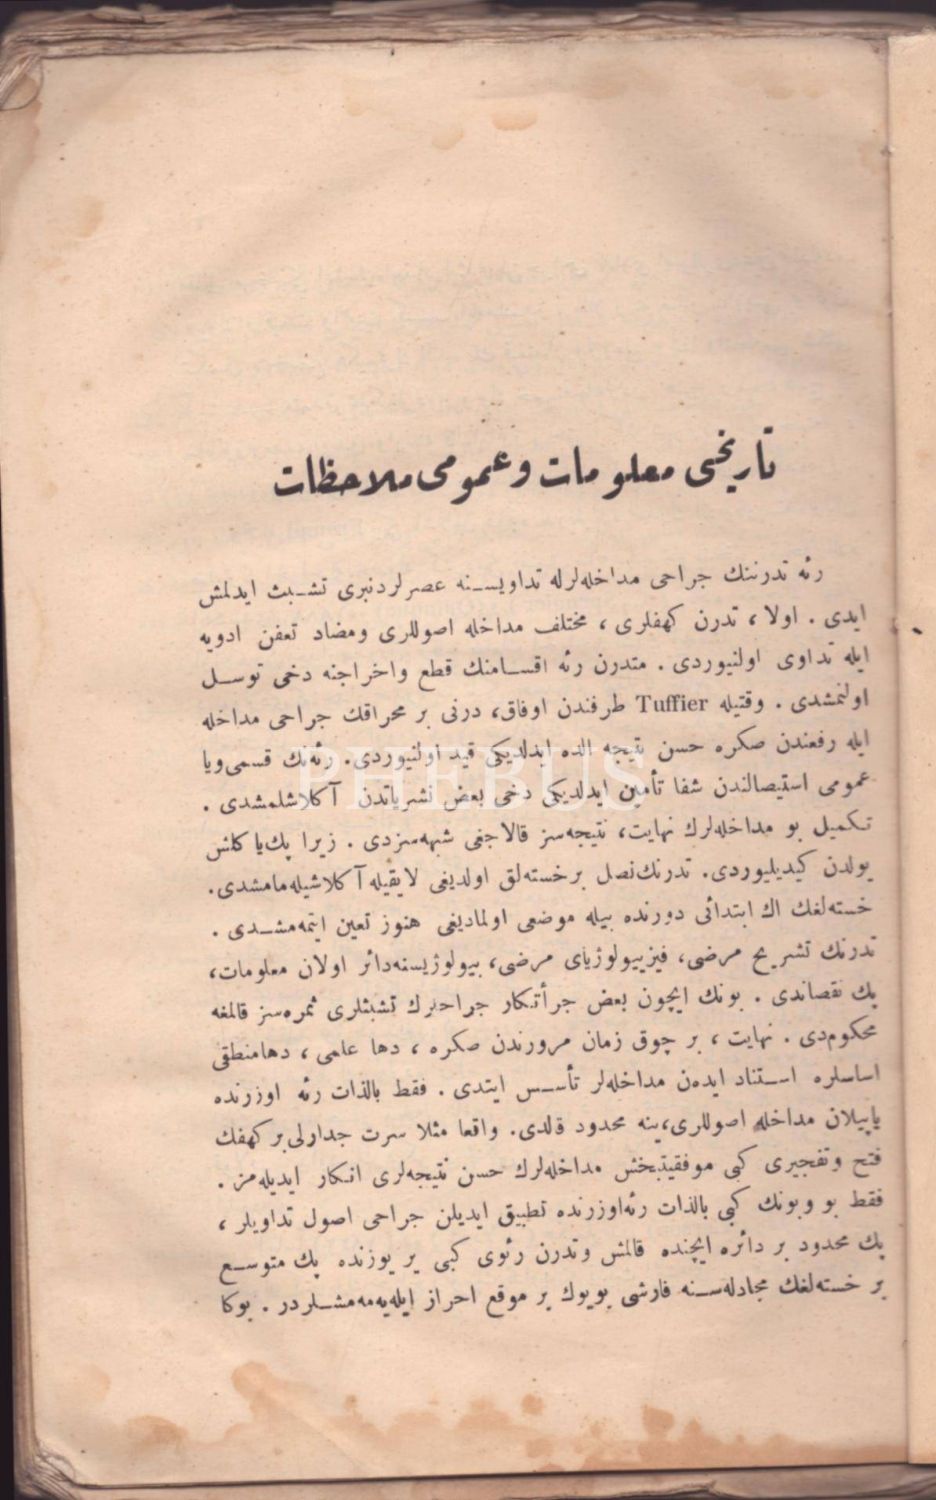 تاريخى معلومات و عمومى ملاحظات
رئه تدرننك جراحى مداخله‌لرله تداويسنه عصرلردنبرى تشبث ايدلمش
ايدى . اولا ، تدرن كهفلرى ، مختلف مداخله اصوللرى ومضاد تعفن ادويه
ايله تداوى اولنيوردى . متدرن رئه اقسامنك قطع واخراجنه دخى توسل
اولنمشدى . وقتيله Tuffier طرفندن اوفاق، درنى بر محراقك جراحى مداخله
ايله رفعندن صكره حسن نتيجه الده ايدلديكى قيد اولنيوردى. رئه‌نك قسمى‌ويا
عمومى استيصالندن شفا تأمين ايدلديكى دخى بعض نشرياتدن آكلاشلمشدى .
PHEBUS
تكميل بو مداخله‌لرك نهايت، نتيجه‌سز قالاجغى شبهه‌سزدى . زيرا پك‌ياكلش
يولدن كيديليوردى. تدرنك‌نصل برخسته‌لق اولديغى لايقيله آكلاشيله‌مامشدى.
خسته‌لغك اك ابتدائى دورنده بيله موضعى اولماديغى هنوز تعين ايتمه‌مشدى .
تدرنك تشريح مرضى، فيزييولوژياى مرضى، بيولوژيسنه‌دائر اولان معلومات،
پك نقصاندى . بونك ايچون بعض جرأتكار جراحلرك تشبثلرى ثمره‌سز قالمغه
محكوم‌دى . نهايت ، بر چوق زمان مرورندن صكره ، دها علمى ، دهامنطقى
اساسلره استناد ايده‌ن مداخله‌لر تأسس ايتدى . فقط بالذات رئه اوزرنده
ياپيلان مداخله اصوللرى، ينه محدود قالدى. واقعا مثلا سرت جدارلى‌بر كهفك
فتح وتفجيرى كبى موفقيتبخش مداخله‌لرك حسن نتيجه‌لرى انكار ايديله‌مز .
فقط بو وبونك كبى بالذات رئه‌اوزرنده تطبيق ايديلن جراحى اصول تداويلر ،
پك محدود بر دائره ايچنده قالمش وتدرن رئوى كبى ير يوزنده پك متوسع
بر خسته‌لغك مجادله‌سنه قارشى بويوك بر موقع احراز ايليه‌مه‌مشلردر . بوكا